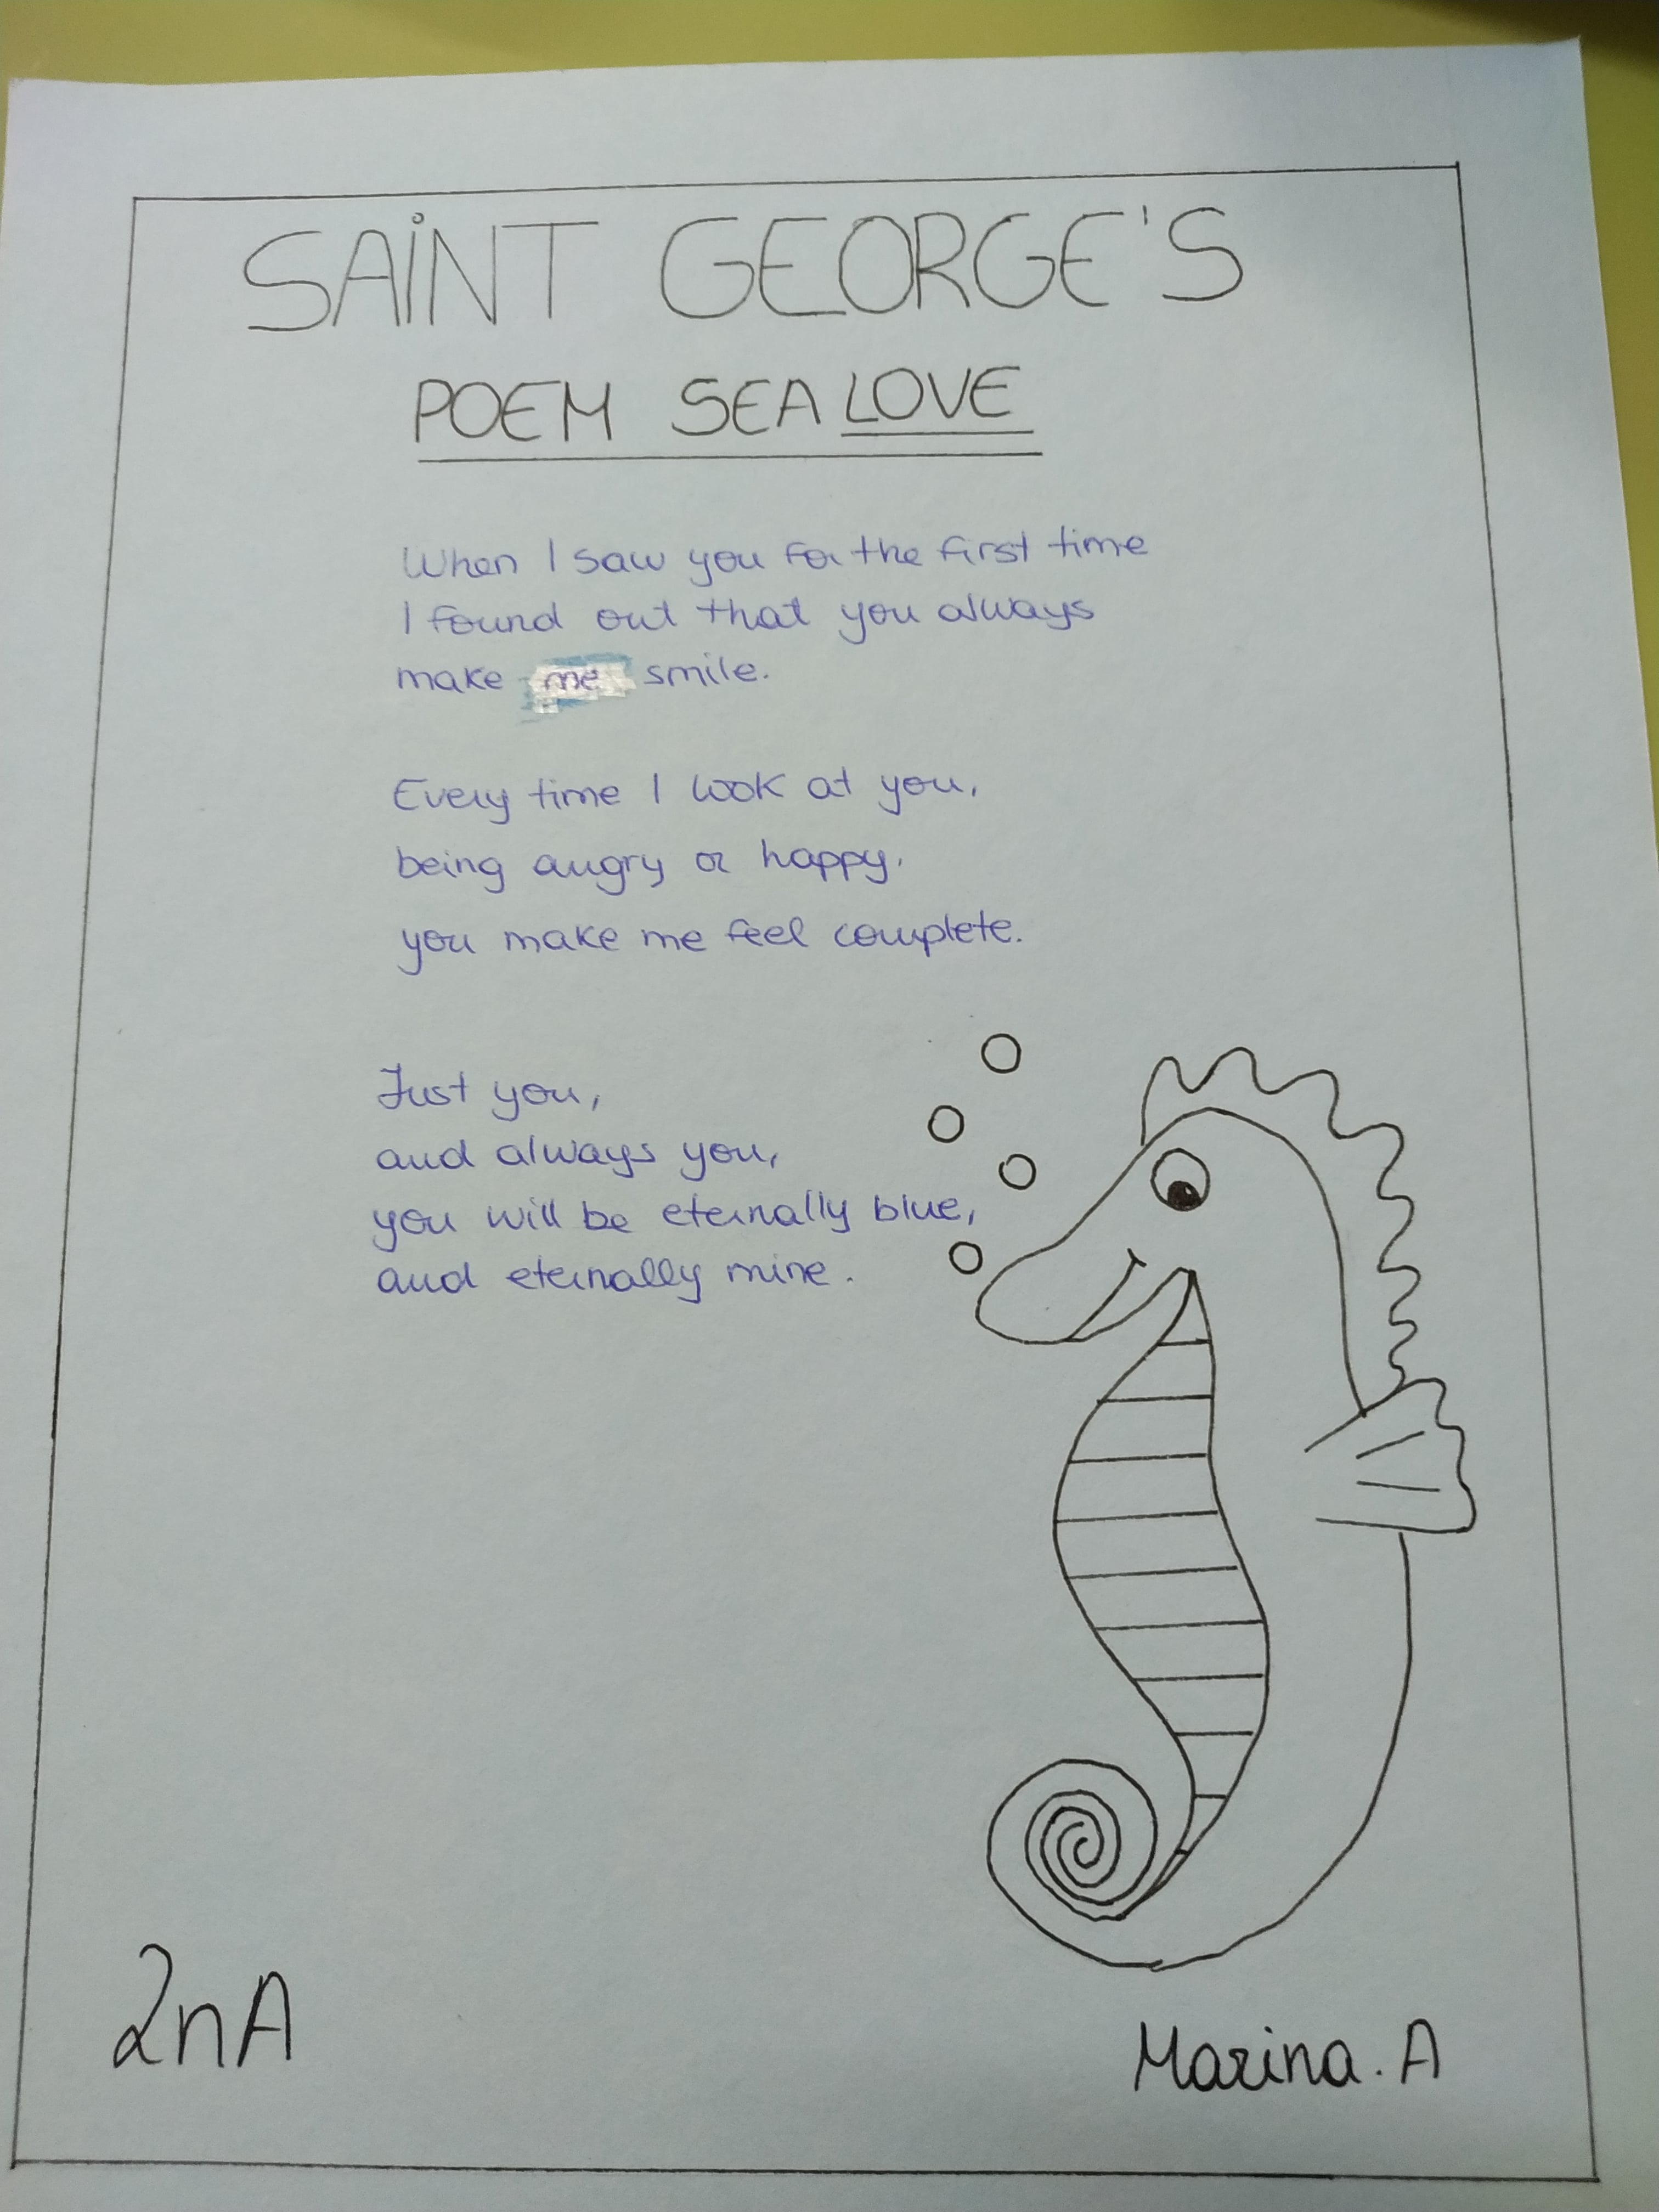 SAiNT GEORGE'S
POEM SEA LOVE
When I saw you for the first time
I found out that you always
make me smile.
Every time I look at you,
being angry or happy.
you make me feel complete.
Just you,
and always you,
you will be eternally blue,
and eternally mine.
2nA
Marina. A